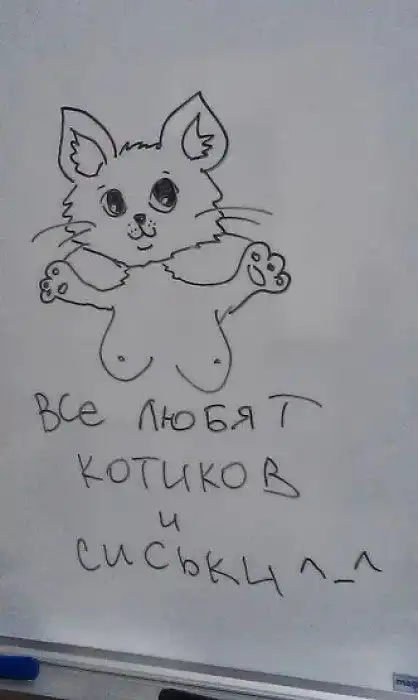 ВСЕ ЛЮБЯТ
КОТИКОВ
И
СИСЬКИ ^_^